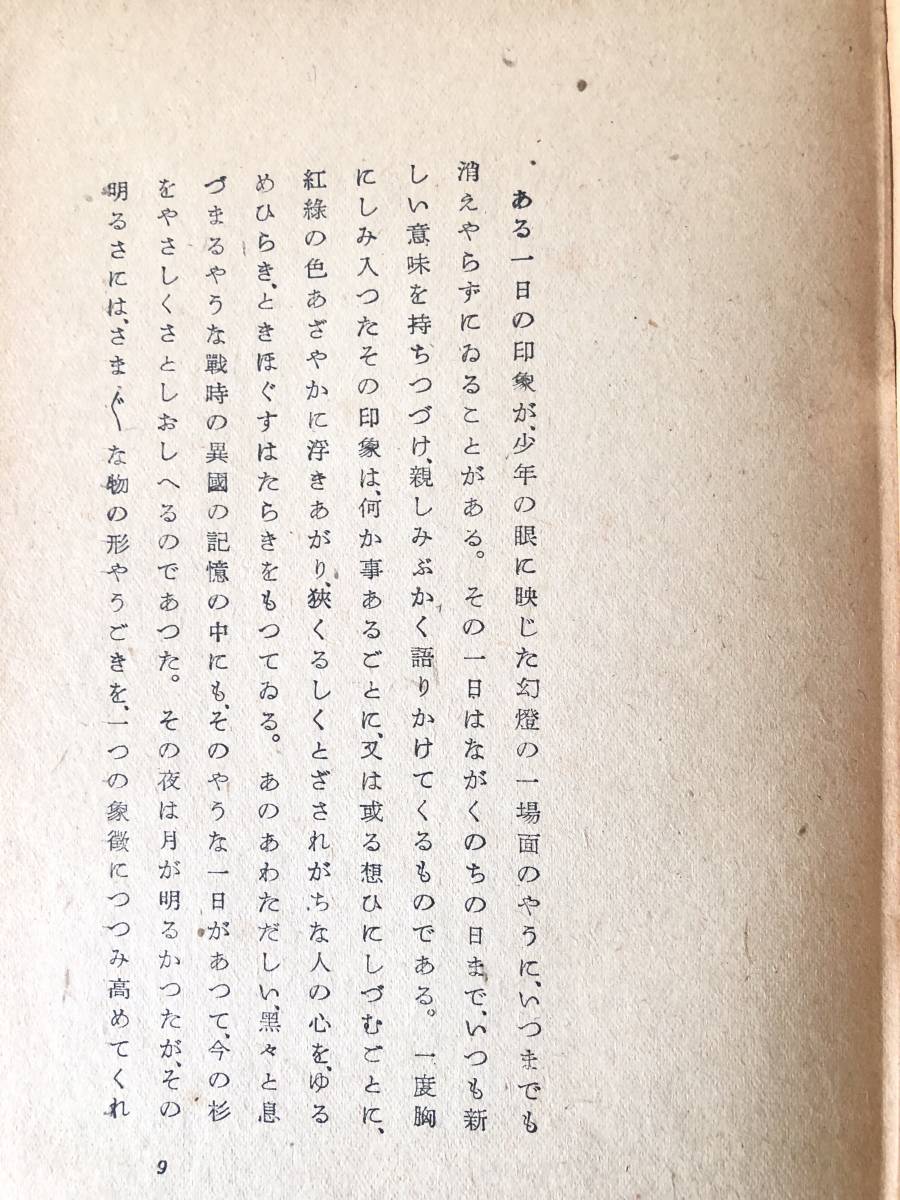 ある一日の印象が、少年の眼に映じた幻燈の一場面のやうに、いつまでも
消えやらずにゐることがある。その一日はながくのちの日まで、いつも新
しい意味を持ちつづけ、親しみぶかく語りかけてくるものである。一度胸
にしみ入つたその印象は、何か事あるごとに、又は或る想ひにしづむごとに、
紅綠の色あざやかに浮きあがり、狹くるしくとざされがちな人の心を、ゆる
めひらき、ときほぐすはたらきをもつてゐる。あのあわただしい、黑々と息
づまるやうな戰時の異國の記憶の中にも、そのやうな一日があつて、今の杉
をやさしくさとしおしへるのであつた。その夜は月が明るかつたが、その
明るさには、さま〴〵な物の形やうごきを、一つの象徵につつみ高めてくれ
9